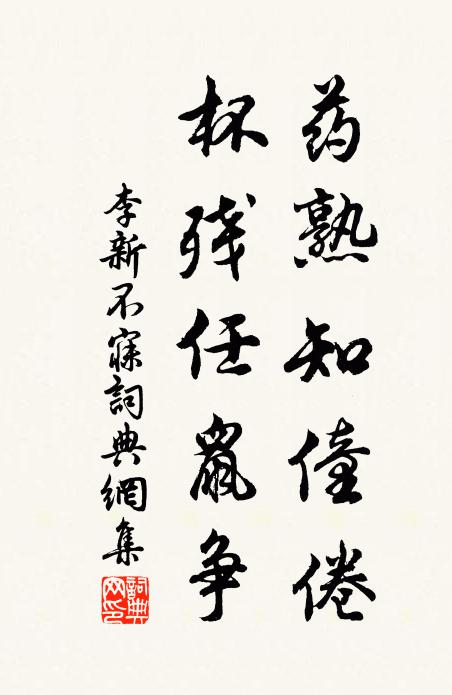 药熟知僮倦
杯残任鼠争
李新不寐詞典網集
詞典网印